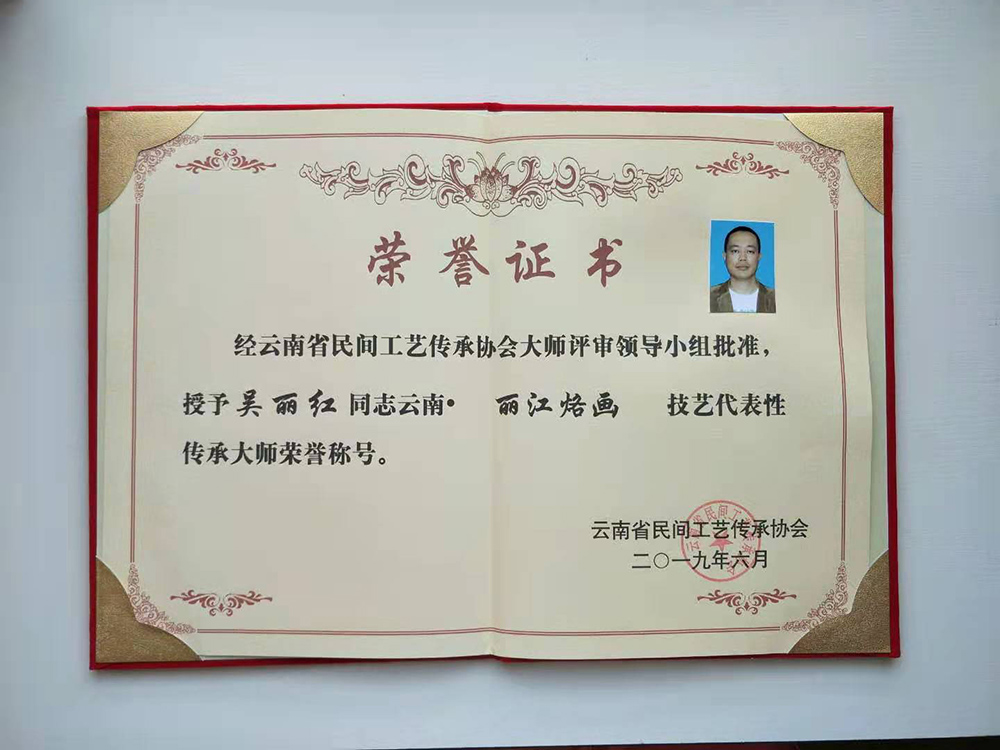 荣誉证书
经云南省民间工艺传承协会大师评审领导小组批准，
授予吴丽红同志云南·丽江烙画技艺代表性
传承大师荣誉称号。
云南省民间工艺传承协会
二〇一九年六月
云南省民间工艺传承协会